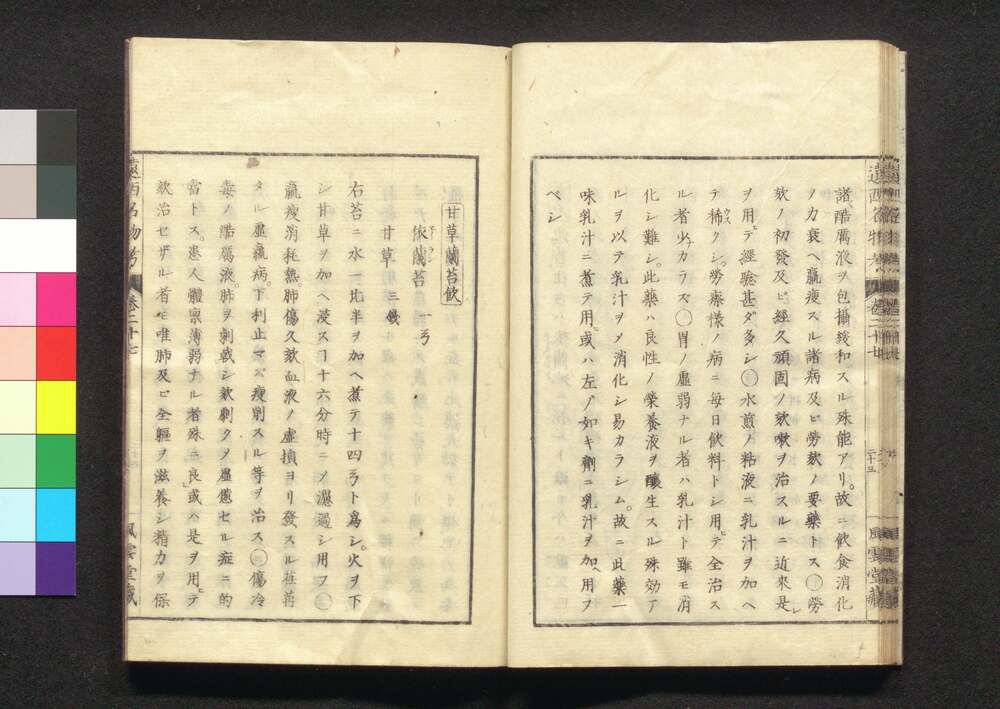 諸ノ酷厲液ヲ包攝緩和スル殊能アリ。故ニ飲食消化
ノカ衰ヘ羸瘦スル諸病及ヒ勞欬ノ要藥トス○勞
欬ノ初發及ヒ經久頑固ノ欬嗽ヲ治スルニ近來是レ
ヲ用テ經驗甚ダ多シ○水煎ノ粘液ニ乳汁ヲ加ヘ
テ稀クシ。勞瘵樣ノ病ニ毎日飲料トシ用ヒテ全治ス
ル者少ナカラス○胃ノ虛弱ナル者ハ乳汁ト雖モ消
化シ難シ。此藥ハ良性ノ榮養液ヲ釀生スル殊効ア
ルヲ以テ乳汁ヲメ消化シ易カラシム。故ニ此藥一
味乳汁ニ煮テ用ヒ或ハ左ノ如キ劑ニ乳汁ヲ加ヘ用フ
ベシ
遠西名物考 卷二十七 二十三 風雲堂藏
甘草蘭苔飲
依蘭苔 一ゥ
甘草 三錢
右苔ニ水一比半ヲ加ヘ煮テ十四ゥト爲シ。火ヲ下
シ甘草ヲ加ヘ浸スコ十六分時ニヲ濾過シ用フ○
羸瘦消耗熱。肺傷久欬血液ノ虛損ヨリ發スル
タル虛羸病。下利止マズ瘦削スル等ヲ治ス○傷冷
毒ノ酷厲液。肺ヲ刺戟シ欬劇ク虛憊セル症ニ的
當トス。患人體禀薄弱ナル者殊ニ良シ或ハ是ヲ用ヒテ
欬治セザル者モ唯肺及ヒ全軀ヲ滋養シ精力ヲ保
遠西名物考 卷二十七 風雲堂藏